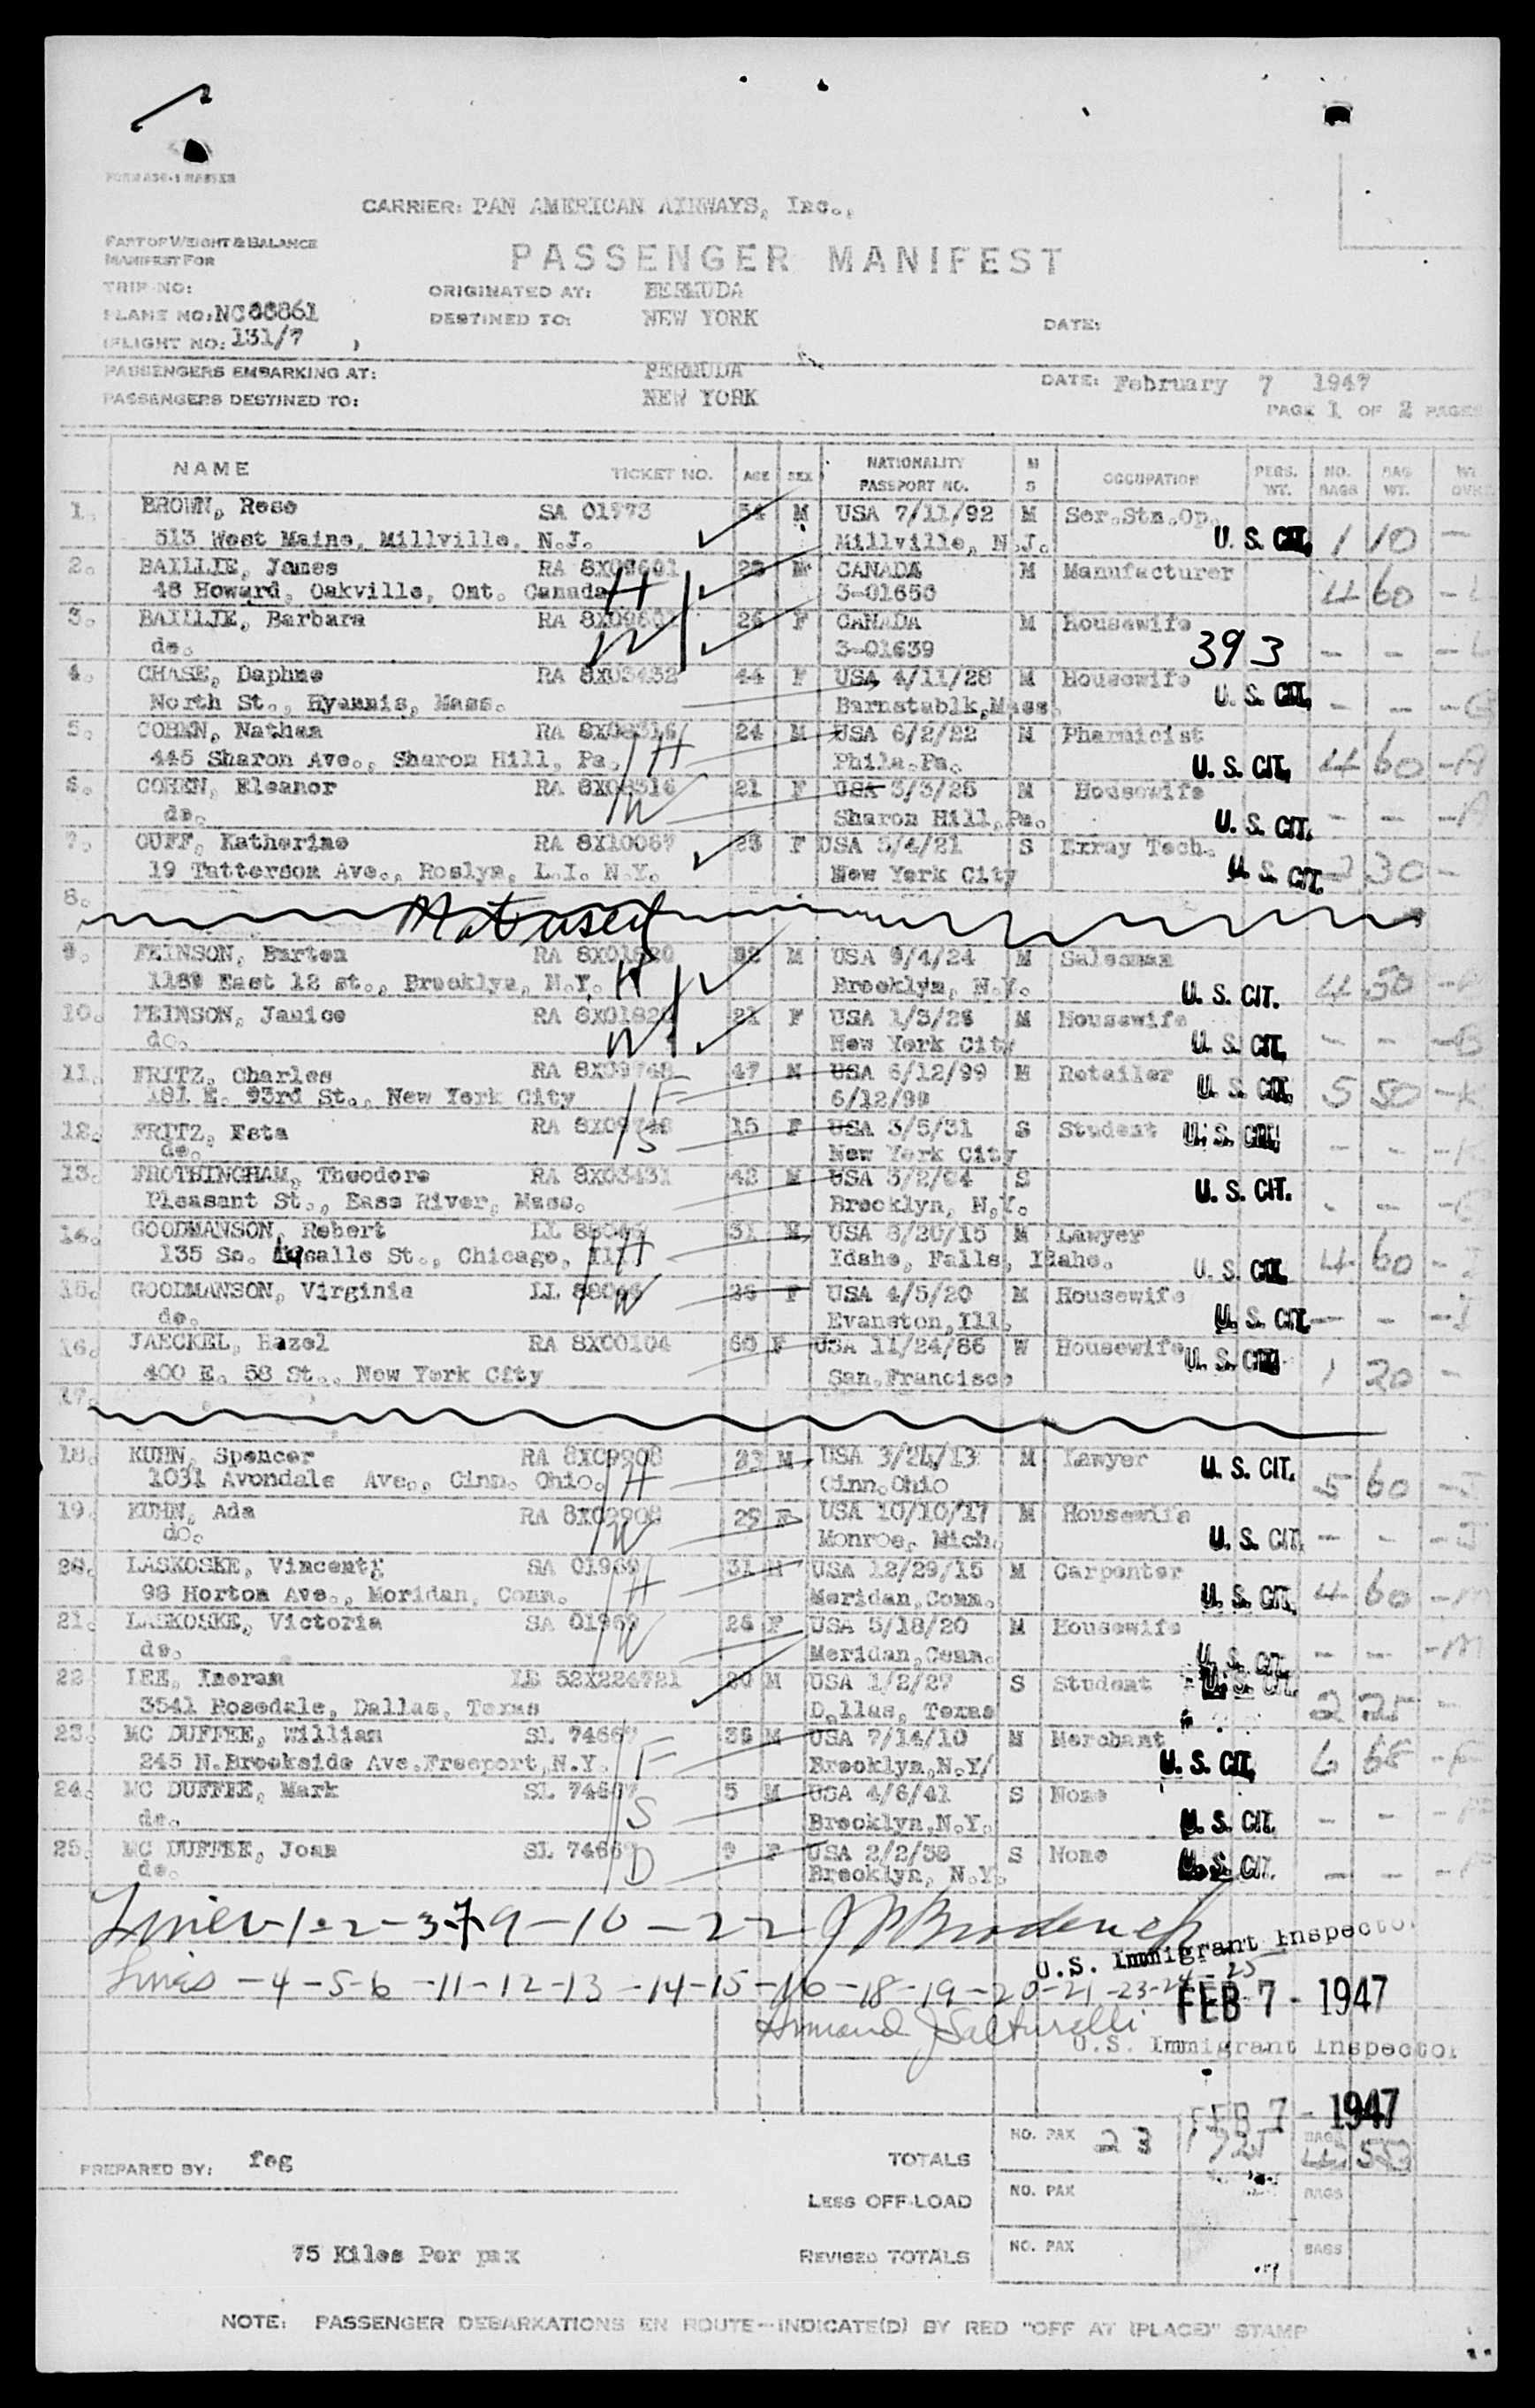 FORM A30-1 MASTER
CARRIER: PAN AMERICAN AIRWAYS, Inc.,
PART OF WEIGHT & BALANCE
MANIFEST FOR
PASSENGER MANIFEST
TRIP NO:
ORIGINATED AT: BERMUDA
PLANE NO: NC88861
DESTINED TO: NEW YORK
DATE:
(FLIGHT NO: 131/7 )
PASSENGERS EMBARKING AT: BERMUDA
DATE: February 7 1947
PASSENGERS DESTINED TO: NEW YORK
PAGE 1 OF 2 PAGES
NAME TICKET NO. AGE SEX NATIONALITY PASSPORT NO. M S OCCUPATION PERS. WT. NO. BAGS BAG WT.
1. BROWN, Rose SA 01973 54 M USA 7/11/92 M Ser.Stn.Op.
513 West Maine, Millville, N.J. Millville, N.J. U. S. CIT. 1 10 -
2. BAILLIE, James RA 8X09601 28 M CANADA M Manufacturer
48 Howard, Oakville, Ont. Canada H 3-01656 4 60 - L
3. BAILLIE, Barbara RA 8X09601 26 F CANADA M Housewife
do. W 3-01639 393 - - - L
4. CHASE, Daphne RA 8X03432 44 F USA 4/11/28 M Housewife
North St., Hyannis, Mass. Barnstablk,Mass. U. S. CIT. - - - G
5. COHEN, Nathan RA 8X08316 24 M USA 6/2/22 M Phamicist
445 Sharon Ave., Sharon Hill, Pa. H Phila.Pa. U. S. CIT. 4 60 - A
6. COHEN, Eleanor RA 8X08316 21 F USA 3/3/25 M Housewife
do. W Sharon Hill,Pa. U. S. CIT. - - - A
7. CUFF, Katherine RA 8X10067 23 F USA 5/4/21 S Exray Tech.
19 Tatterson Ave., Roslyn, L.I. N.Y. New York City U. S. CIT. 2 30 -
8. Not used
9. FEINSON, Barton RA 8X01820 22 M USA 9/4/24 M Salesman
1189 East 12 st., Brooklyn, N.Y. H Brooklyn, N.Y. U. S. CIT. 4 50 - B
10. FEINSON, Janice RA 8X01820 21 F USA 1/3/26 M Housewife
do. W New York City U. S. CIT. - - - B
11. FRITZ, Charles RA 8X09748 47 M USA 6/12/99 M Retailer
181 E. 93rd St., New York City F 6/12/99 U. S. CIT. 5 50 - K
12. FRITZ, Fata RA 8X09748 15 F USA 3/5/31 S Student U. S. CIT.
do. S New York City - - - K
13. FROTHINGHAM, Theodore RA 8X03431 42 M USA 3/2/04 S
Pleasant St., Eass River, Mass. Brooklyn, N.Y. U. S. CIT. - - - G
14. GOODMANSON, Robert LL 88046 31 M USA 8/20/15 M Lawyer
135 So. Lasalle St., Chicago, Ill H Idaho, Falls, Idaho. U. S. CIT. 4 60 - I
15. GOODMANSON, Virginia LL 88046 26 F USA 4/5/20 M Housewife
do. W Evanston,Ill. U. S. CIT. - - - I
16. JAECKEL, Hazel RA 8X00104 60 F USA 11/24/86 W Housewife U. S. CIT.
400 E. 58 St., New York City San.Francisco 1 20 -
17.
18. KUHN, Spencer RA 8X09908 33 M USA 3/24/13 M Lawyer U. S. CIT.
1031 Avondale Ave., Cinn. Ohio. H Cinn.Ohio 5 60 - J
19. KUHN, Ada RA 8X09908 29 F USA 10/10/17 M Housewife
do. W Monroe, Mich. U. S. CIT. - - - J
20. LASKOSKE, Vincenty SA 01969 31 M USA 12/29/15 M Carpenter
98 Horton Ave., Moridan, Conn. H Meridan,Conn. U. S. CIT. 4 60 - M
21. LASKOSKE, Victoria SA 01969 26 F USA 5/18/20 M Housewife
do. W Meridan,Conn. U. S. CIT. - - - M
22 LEE, Ineram LB 52X224721 20 M USA 1/2/27 S Student U. S. CIT.
3541 Rosedale, Dallas, Texas Dallas, Texas 2 25 -
23. MC DUFFEE, William SL 74667 36 M USA 7/14/10 M Merchant
245 N.Brookside Ave.Freeport,N.Y. F Brooklyn,N.Y/ U. S. CIT. 6 68 - F
24. MC DUFFEE, Mark SL 74667 5 M USA 4/6/41 S None
do. S Brooklyn,N.Y. U. S. CIT. - - - F
25. MC DUFFEE, Joan SL 74667 9 F USA 2/2/38 S None
do. D Brooklyn, N.Y. U. S. CIT. - - - F
Lines-1-2-3-7-9-10-22
U.S. Immigrant Inspector
Lines -4-5-6-11-12-13-14-15-16-18-19-20-21-23-24-25
FEB 7 - 1947
Armand J Salturelli
U.S. Immigrant Inspector
FEB 7 - 1947
PREPARED BY: feg
TOTALS NO. PAX 23 1725 BAGS 42 553
LESS OFF-LOAD NO. PAX BAGS
75 Kilos Per pax
REVISED TOTALS NO. PAX BAGS
NOTE: PASSENGER DEBARKATIONS EN ROUTE—INDICATE(D) BY RED "OFF AT (PLACE)" STAMP